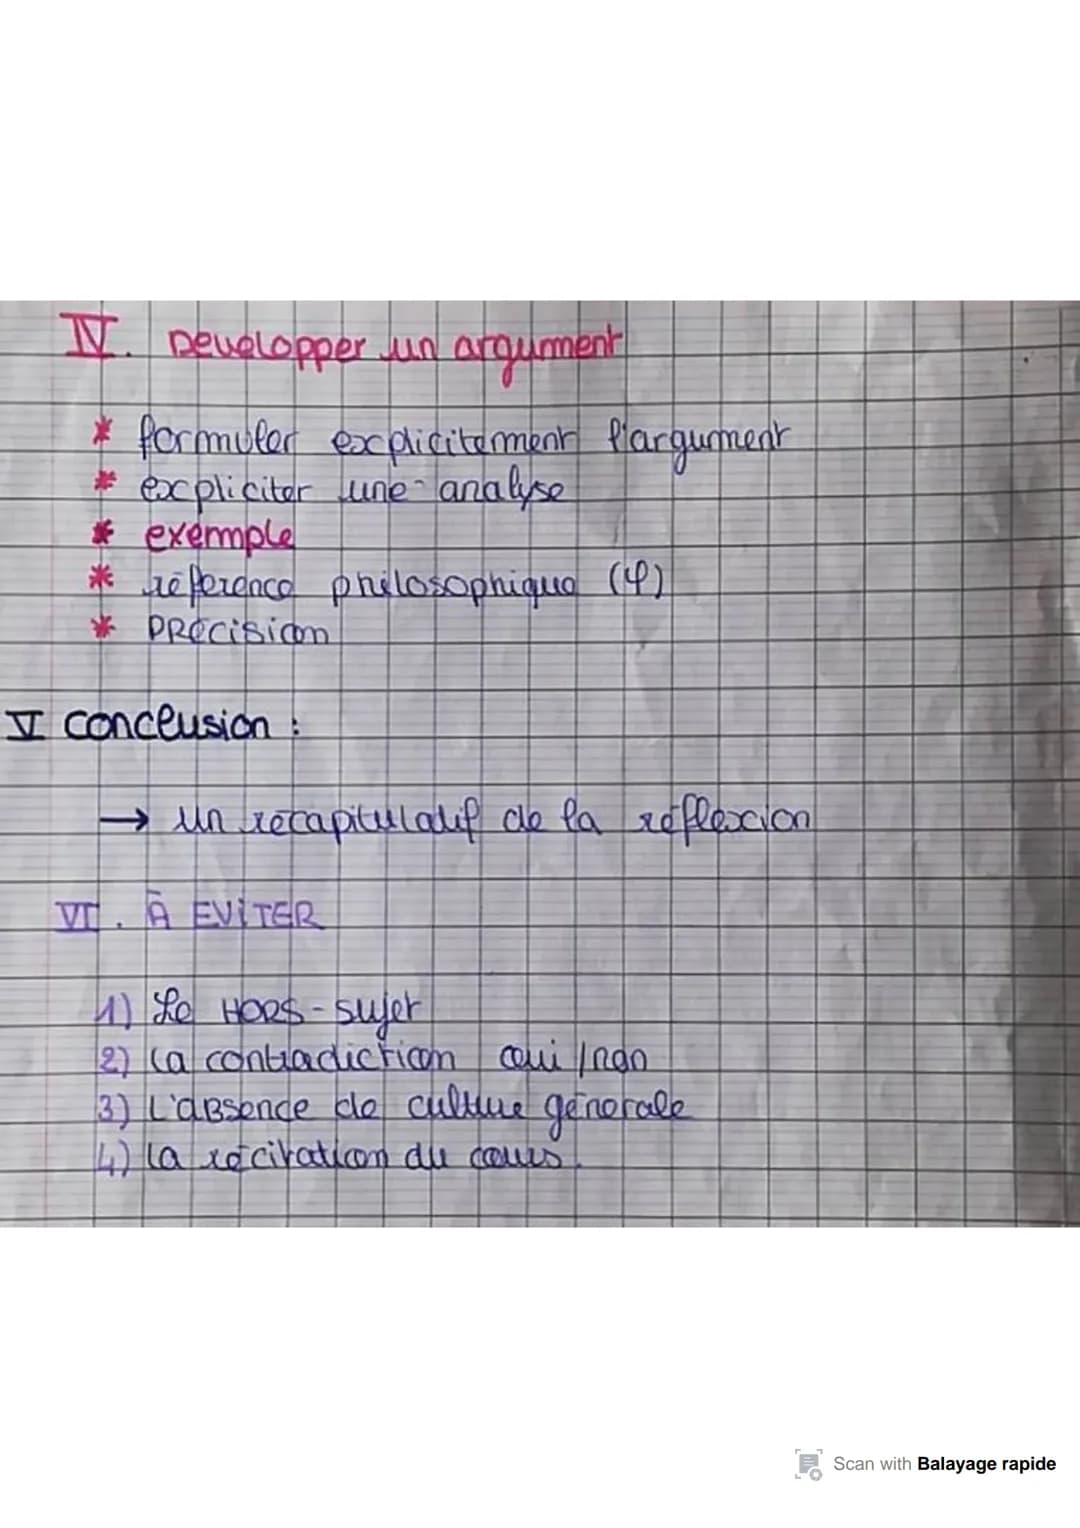 IV. Developper un argument
* formuler explicitement l'argument
* expliciter une analyse
* exemple
* référence philosophique (φ)
* PRécision
V conclusion :
→ un récapitulatif de la réflexion
VI. À EViTER
1) Le HORS-sujet
2) la contradiction oui/non
3) L'aBsence de culture générale
4) la récitation du cours.
Scan with Balayage rapide